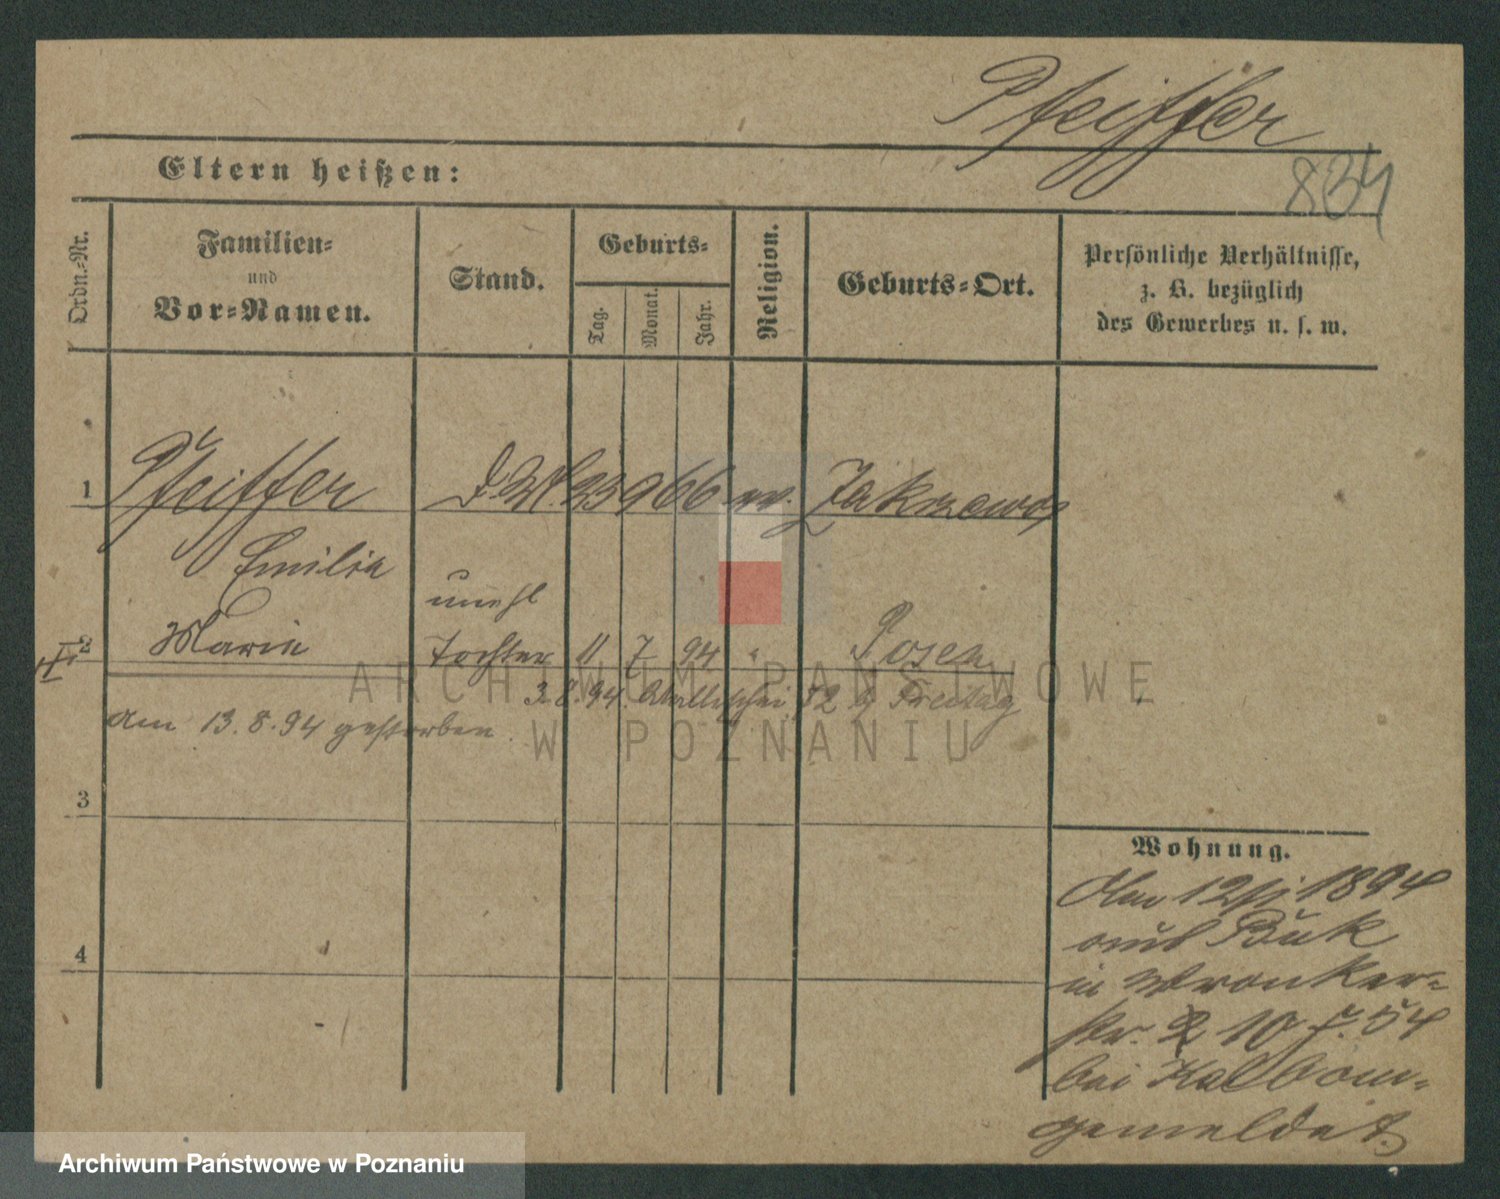 Pfeiffer
834
Eltern heißen:
Ordn.-Nr.
Familien-
und
Vor-Namen.
Stand.
Geburts-
Tag.
Monat.
Jahr.
Religion.
Geburts-Ort.
Persönliche Verhältnisse,
z. B. bezüglich
des Gewerbes u. s. w.
1 Pfeiffer D. M. 23 9 66 Zakrzewo
Emilia
unehl
2 Maria Tochter 11 7 94 " Posen
3.8.94. 52 b Freitag
am 13.8.94 gestorben.
3
4
Wohnung.
1894
aus Buk
in Wronker-
str. 10
bei
gemeldet.
ARCHIWUM PAŃSTWOWE
W POZNANIU
Archiwum Państwowe w Poznaniu